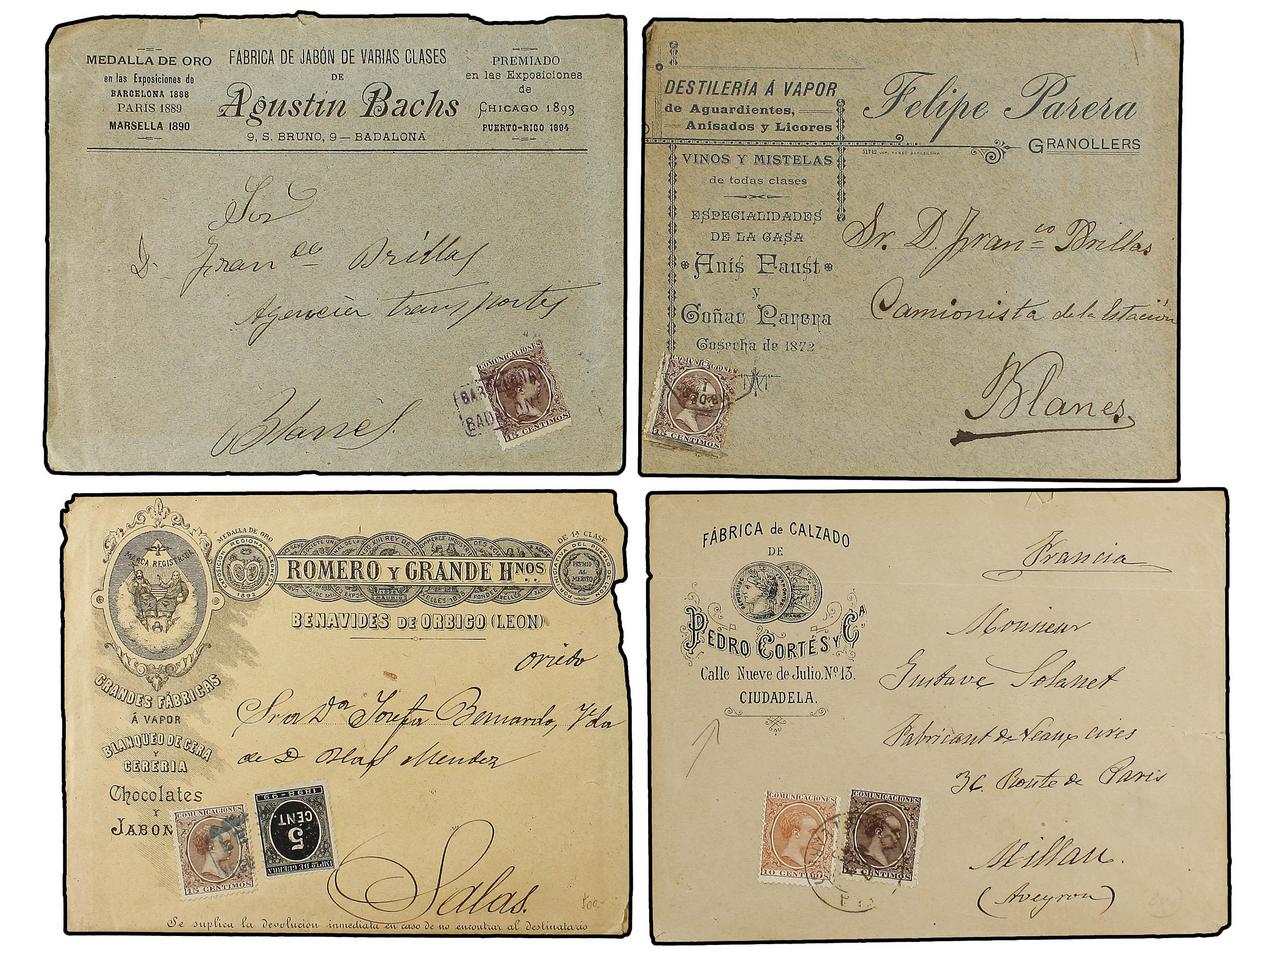 MEDALLA DE ORO
en las Exposiciones de
BARCELONA 1888
PARIS 1889
MARSELLA 1890
FÁBRICA DE JABÓN DE VARIAS CLASES
DE
Agustin Bachs
9, S. BRUNO, 9 — BADALONA
PREMIADO
en las Exposiciones
de
CHICAGO 1893
PUERTO-RICO 1894
Sor
D. Fran.co Brillas
Agencia transportes
Blanes
BARCELONA
COMUNICACIONES
15 CENTIMOS
DESTILERÍA Á VAPOR
de Aguardientes,
Anisados y Licores
VINOS Y MISTELAS
de todas clases
ESPECIALIDADES
DE LA CASA
Anís Faust
y
Coñac Parera
Cosecha de 1872
Felipe Parera
GRANOLLERS
Sr. D. Fran.co Brillas
Camionista de la Estación
Blanes
COMUNICACIONES
15 CENTIMOS
MARCA REGISTRADA
MEDALLA DE ORO
DE 1ª CLASE
ROMERO Y GRANDE Hnos.
BENAVIDES DE ORBIGO (LEON)
PREMIO
AL
MERITO
GRANDES FÁBRICAS
Á VAPOR
BLANQUEO DE CERA
Y
CERERIA
Chocolates
Y
JABON
Oviedo
Sra Dª Josefa Bernardo, Vda
de D Blas Mendez
Salas.
COMUNICACIONES
15 CENTIMOS
1898-99
5
CENT.
IMPTO DE GUERRA
Se suplica la devolucion inmediata en caso de no encontrar al destinatario
FÁBRICA de CALZADO
DE
PEDRO CORTÉS Y Cª
Calle Nueve de Julio. Nº 13.
CIUDADELA.
Francia
Monsieur
Gustave Solanet
Fabricant de Veaux cirés
Route de Paris
Millau.
(Aveyron)
COMUNICACIONES
10 CENTIMOS
COMUNICACIONES
CENTIMOS